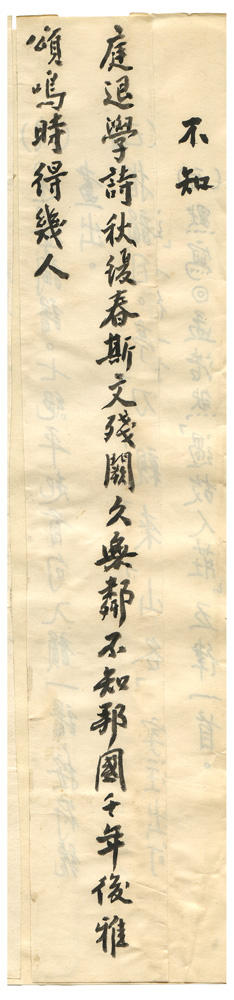 不知
庭退學詩秋復春斯文殘闕久無鄰不知邦國千年後雅
頌鳴時得幾人